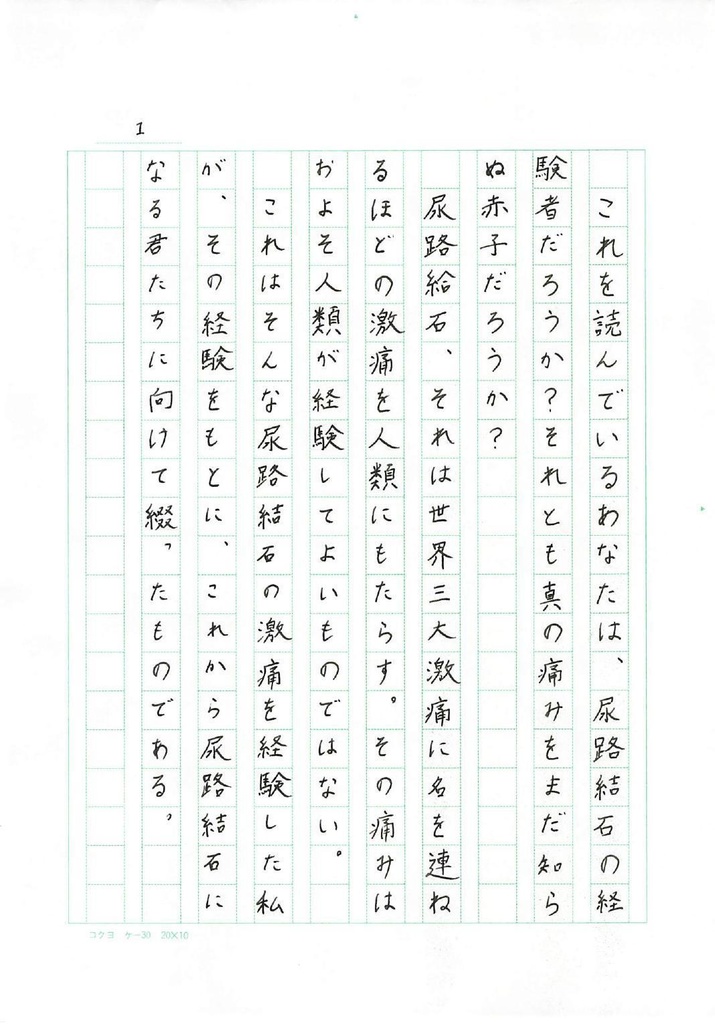 1
これを読んでいるあなたは、尿路結石の経
験者だろうか?それとも真の痛みをまだ知ら
ぬ赤子だろうか?
尿路給石、それは世界三大激痛に名を連ね
るほどの激痛を人類にもたらす。その痛みは
およそ人類が経験してよいものではない。
これはそんな尿路結石の激痛を経験した私
が、その経験をもとに、これから尿路結石に
なる君たちに向けて綴ったものである。
コクヨ ケー30 20×10